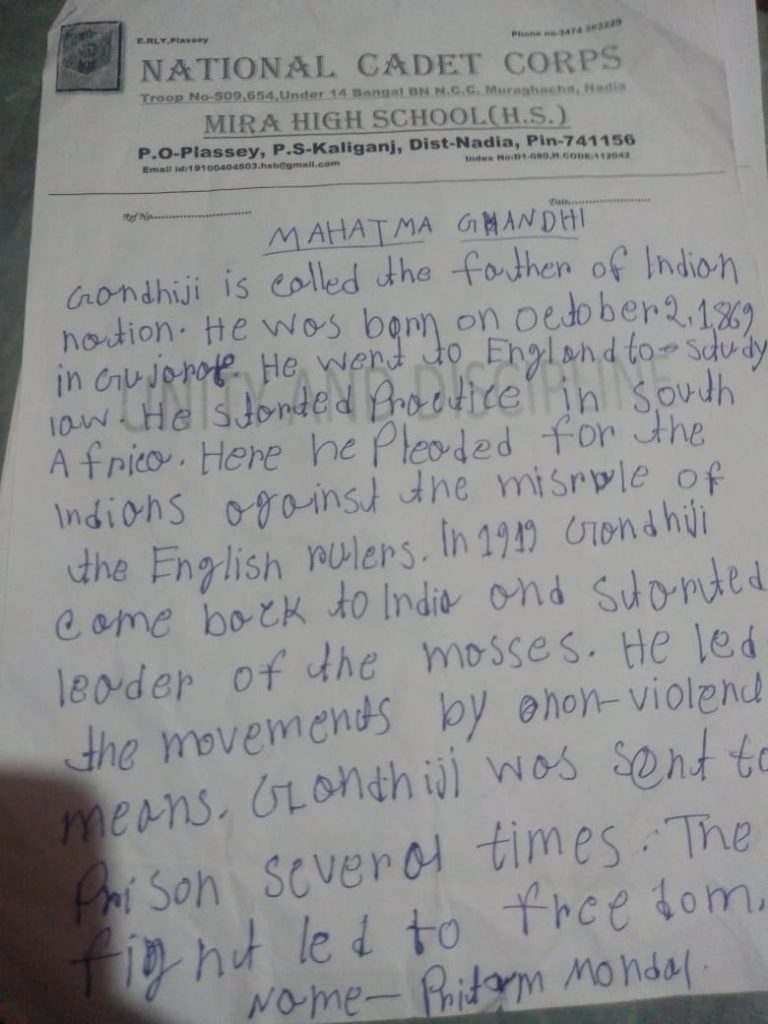 E.RLY,Plassey
Phone no:3474 262229
NATIONAL CADET CORPS
Troop No-509,654,Under 14 Bengal BN N.C.C. Muraghacha, Nadia
MIRA HIGH SCHOOL(H.S.)
P.O-Plassey, P.S-Kaliganj, Dist-Nadia, Pin-741156
Email id:19100404503.hsb@gmail.com Index No:D1-080,H.CODE:112042
Ref No............................ Date............................
MAHATMA GHANDHI
Gandhiji is called the father of Indian
nation. He was born on October 2, 1869
in Gujarat. He went to England to study
law. He started Practice in South
UNITY AND DISCIPLINE
Africa. Here he Pleaded for the
Indians against the misrule of
the English rulers. In 1919 Gandhiji
came back to India and started
leader of the masses. He led
the movements by non-violent
means. Gandhiji was sent to
Prison several times. The
fight led to freedom.
Name- Pritam Mondal.